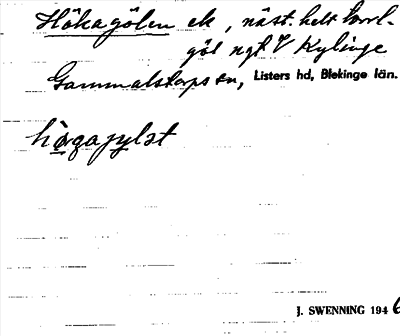 Hökagölen ek, näst. helt torrl.
göl ngt V Kylinge
Gammalstorps sn, Listers hd, Blekinge län.
hògajylət
J. SWENNING 1946